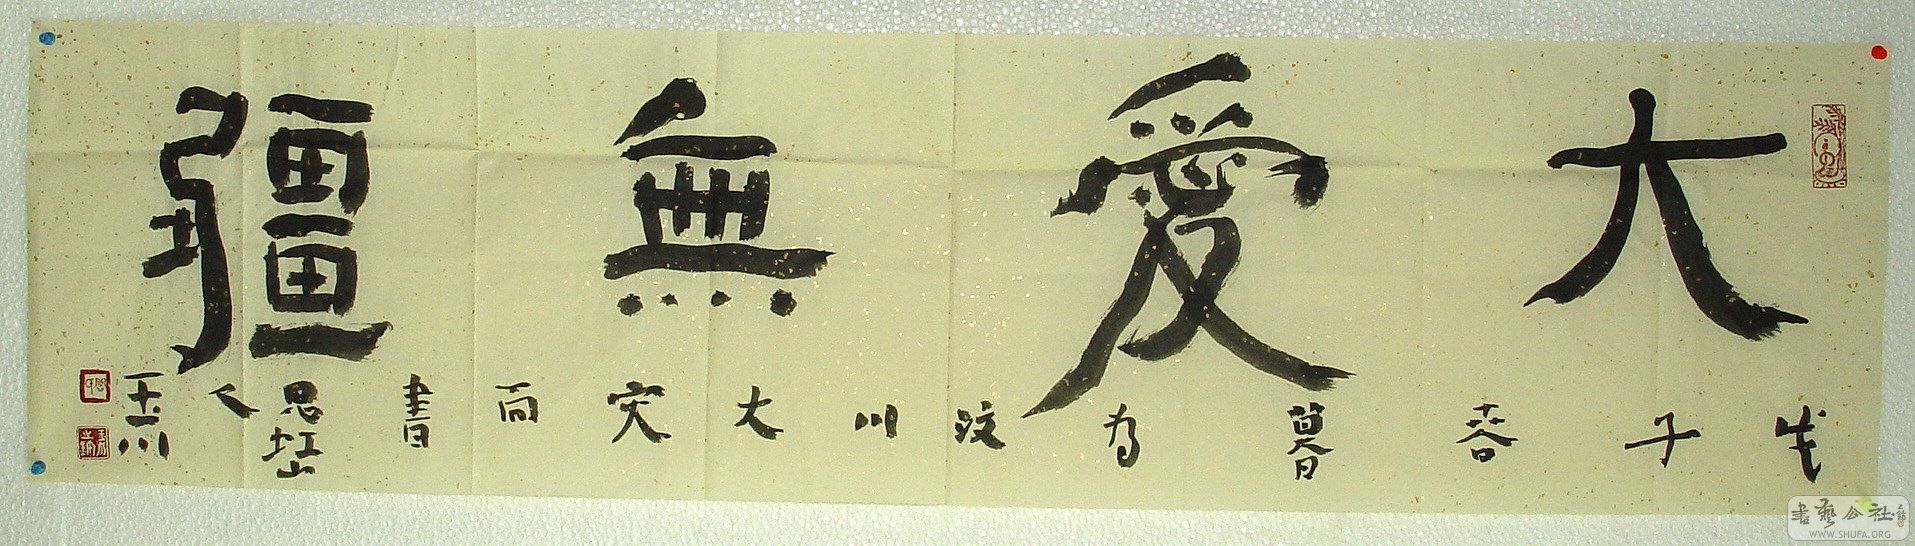 大愛無疆
戊子春暮为汶川大灾而書
書藝公社
WWW.SHUFA.ORG